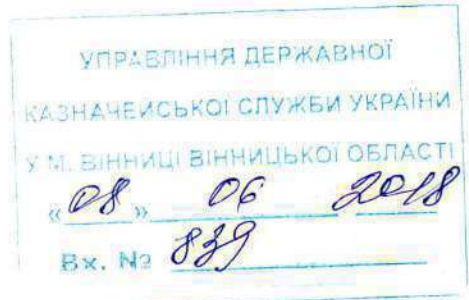 УПРАВЛІННЯ ДЕРЖАВНОЇ
КАЗНАЧЕЙСЬКОЇ СЛУЖБИ УКРАЇНИ
У М. ВІННИЦІ ВІННИЦЬКОЇ ОБЛАСТІ
«08» 06 2018
Вх. № 839